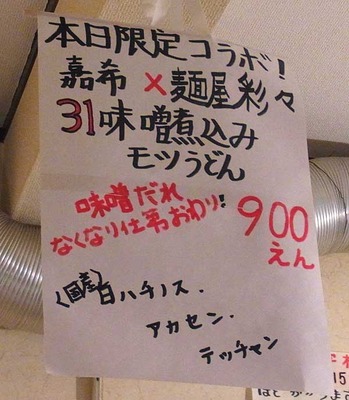 本日限定コラボ!
嘉希×麺屋彩々
31味噌煮込み
モツうどん
味噌だれ
なくなり仕事おわり!
900
えん
(国産)白ハチノス.
アカセン.
テッチャン
15